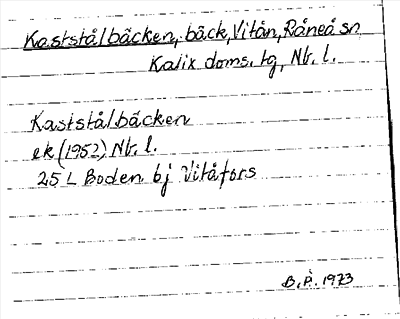 Kaststålbäcken, bäck, Vitån, Råneå sn
Kalix doms. tg, Nb. l.
Kaststålbäcken
ek (1952) Nb. l.
25 L Boden bj Vitåfors
B. P. 1973